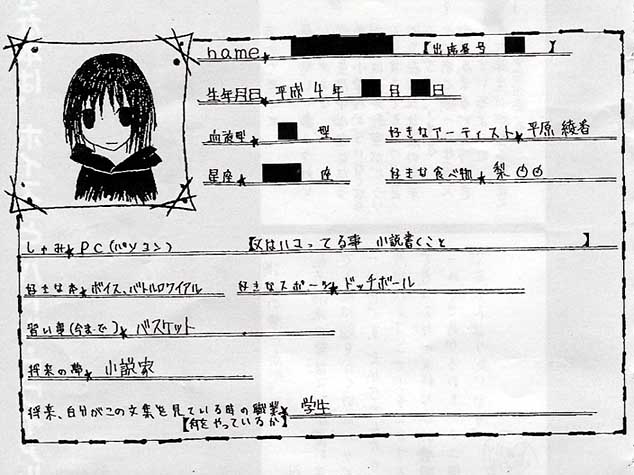 name★ 【出席番号 】
生年月日★ 平成4年 月 日
血液型★ 型 好きなアーティスト★平原綾香
星座★ 座 好きな食べ物★梨
しゅみ★PC(パソコン) 【又はハマってる事 小説書くこと 】
好きな本★ボイス、バトルロワイアル 好きなスポーツ★ドッチボール
習い事(今まで)★バスケット
将来の夢★小説家
将来、自分がこの文集を見ている時の職業★学生
【何をやっているか】